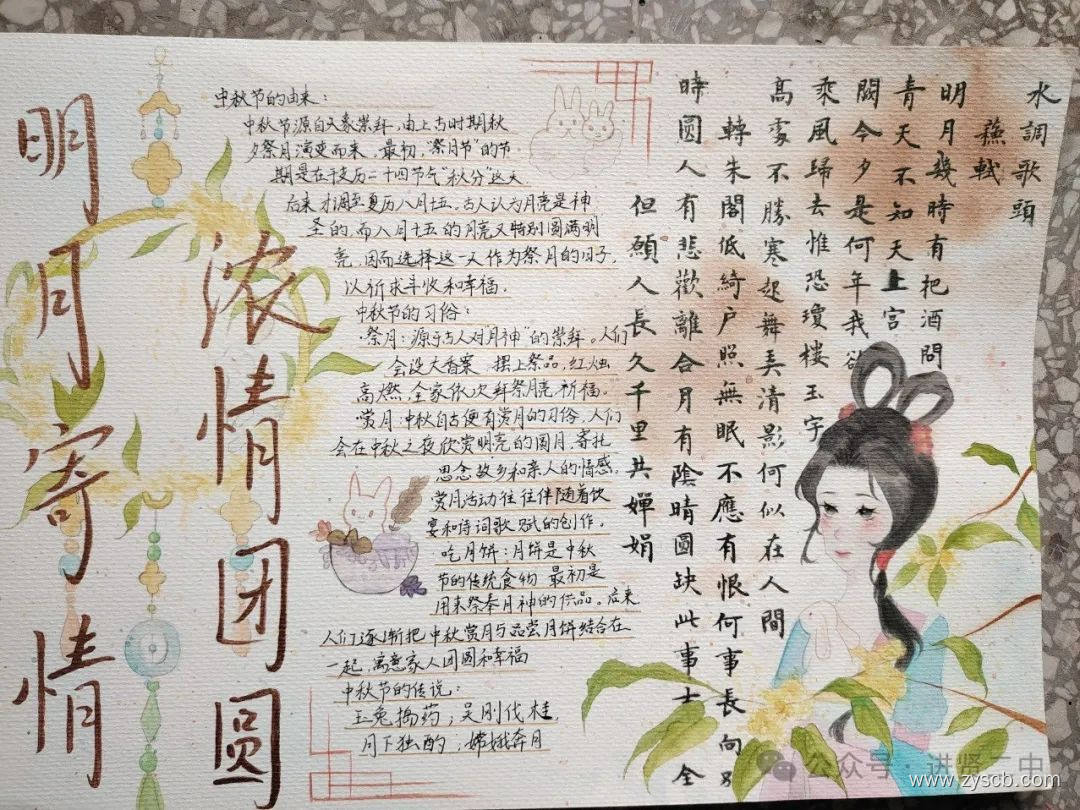 明月寄情
浓情团圆
中秋节的由来：
中秋节源自天象崇拜，由上古时期秋
夕祭月演变而来，最初，“祭月节”的节
期是在干支历二十四节气“秋分”这天
后来才调至夏历八月十五，古人认为月亮是神
圣的，而八月十五的月亮又特别圆满明
亮，因而选择这一天作为祭月的日子，
以祈求丰收和幸福。
中秋节的习俗：
祭月：源于古人对“月神”的崇拜。人们
会设大香案 摆上祭品，红烛
高燃，全家依次拜祭月亮 祈福。
赏月：中秋自古便有赏月的习俗，人们
会在中秋之夜欣赏明亮的圆月，寄托
思念故乡和亲人的情感，
赏月活动往往伴随着饮
宴和诗词歌赋的创作。
吃月饼：月饼是中秋
节的传统食物 最初是
用来祭奉月神的供品。后来
人们逐渐把中秋赏月与品尝月饼结合在
一起，寓意家人团圆和幸福
中秋节的传说：
玉兔捣药；吴刚伐桂，
月下独酌；嫦娥奔月
水調歌頭
蘓軾
明月幾時有把酒問
青天不知天上宮
闕今夕是何年我欲
乘風歸去惟恐瓊樓玉宇
髙處不勝寒起舞美清影何似在人間
轉朱閣低綺户照無眠不應有恨何事長向别
時圓人有悲歡離合月有陰晴圓缺此事士全
但願人長久千里共嬋娟
公众号·进贤二中
www.zyscb.com